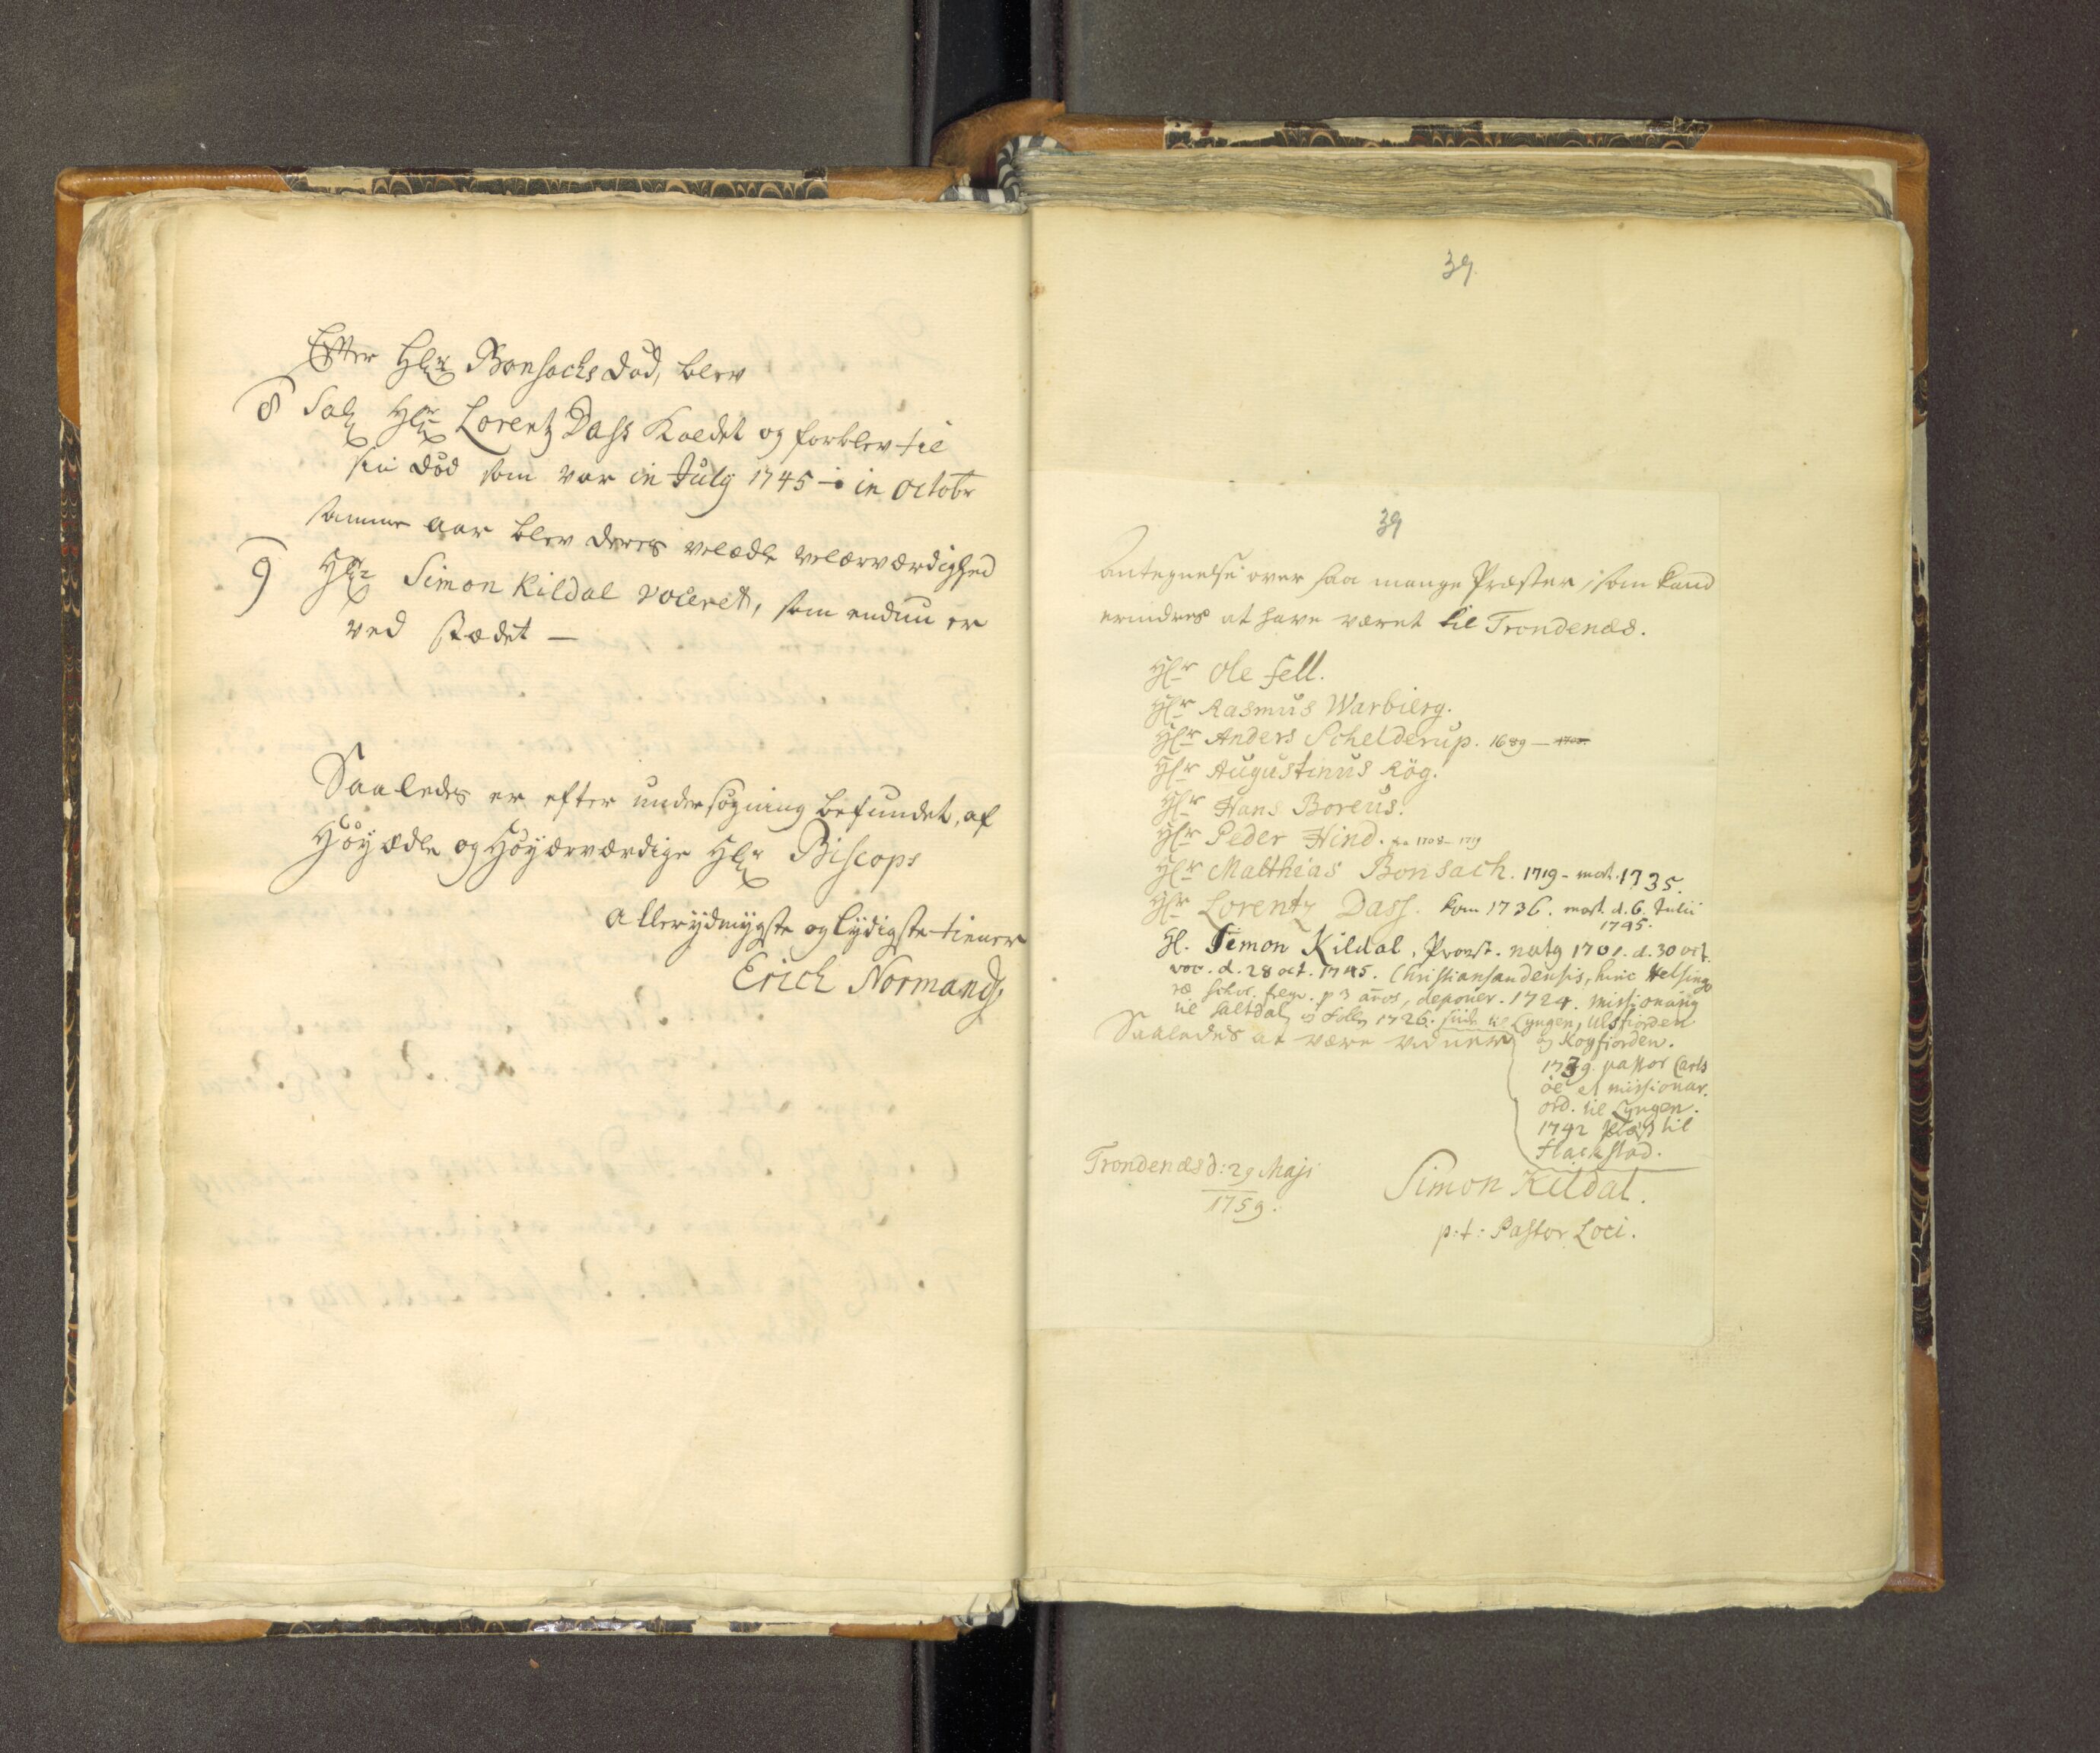 Efter Hr Bonsachs Død, blev
8 Sal Hr Lorentz Dass Kaldet og forblev til
sin Død som var in July 1745 – in Octobr
samme aar blev deres velædle velærværdighed
9 Hr Simon Kildal voceret, som endnu er
ved stædet –
Saaledes er efter undersøgning befundet, af
Høyædle og Høyærværdige Hr Biscops
allerydmygste og lydigste tiener
Erich Normand
39
39
Antegnelse over saa mange Præster, som kand
erindres at have været til Trondenæs.
Hr Ole Fell.
Hr Rasmus Warbierg.
Hr Anders Schelderup. 1689 –
Hr Augustinus Røg.
Hr Hans Boreus.
Hr Peder Hind. 1708 – 1719
Hr Matthias Bonsach. 1719 – mort. 1735.
Hr Lorentz Dass. kom 1736. mort. d. 6. Julii
1745.
H. Simon Kildal, Provst. natg 1701. d. 30 oct.
voc. d. 28 oct. 1745. Christiansandensis, hinc Helsingo
ræ Schol. p 3 años, deponer. 1724. missionarig
til Saltdal og Folly 1726. siden til Lyngen, Ulsfiorden
Saaledes at være vidner
og Kogfiorden.
1739. pastor Carls
øe et missionar.
ord. til Lyngen.
1742 til
Flackstad.
Trondenæs d: 29 Maji
1759.
Simon Kildal.
p: t: Pastor Loci.